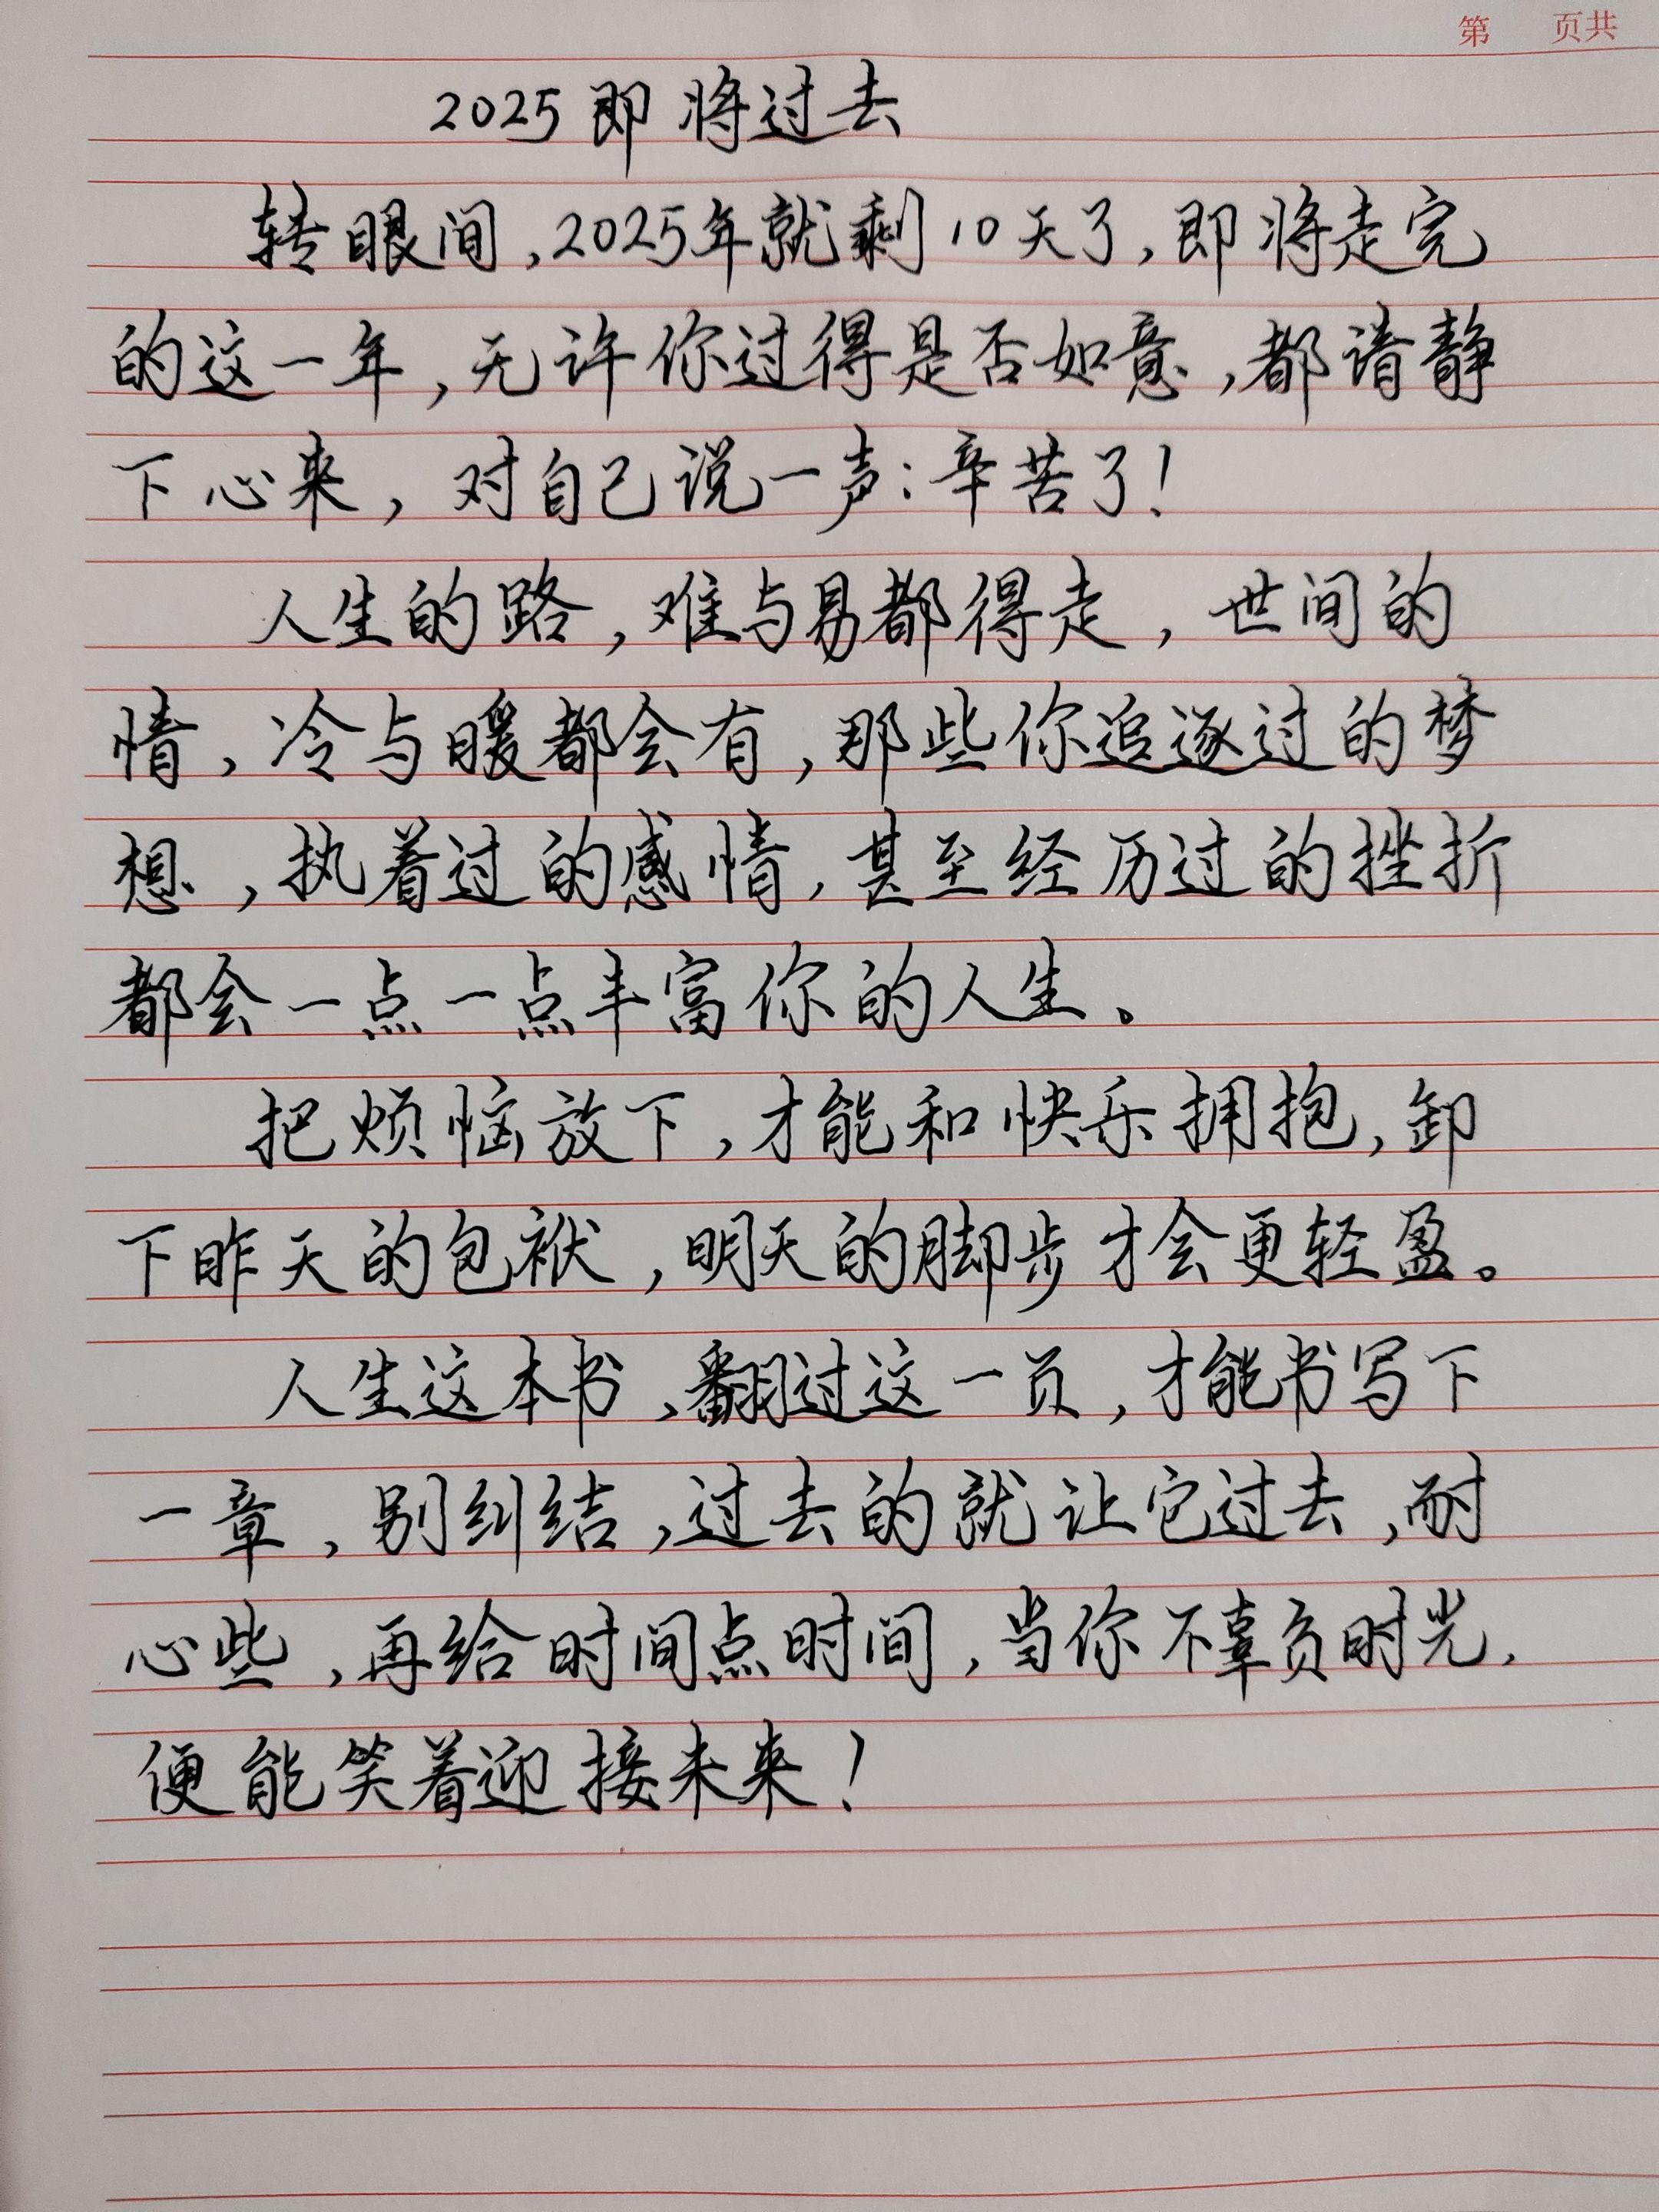 第 页共
2025即将过去
转眼间,2025年就剩10天了,即将走完
的这一年,无许你过得是否如意,都请静
下心来,对自己说一声:辛苦了!
人生的路,难与易都得走,世间的
情,冷与暖都会有,那些你追逐过的梦
想,执着过的感情,甚至经历过的挫折
都会一点一点丰富你的人生。
把烦恼放下,才能和快乐拥抱,卸
下昨天的包袱,明天的脚步才会更轻盈。
人生这本书、翻过这一页,才能书写下
一章,别纠结,过去的就让它过去,耐
心些,再给时间点时间,当你不辜负时光,
便能笑着迎接未来!